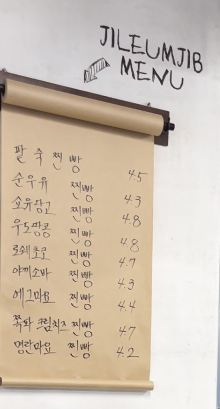 JILEUMJIB
MENU
팥죽찐빵 4.5
순우유 찐빵 4.3
소유앙고 찐빵 4.8
우도땅콩 찐빵 4.8
로쉐초코 찐빵 4.7
야끼소바 찐빵 4.3
에그마요 찐빵 4.4
쪽파크림치즈 찐빵 4.7
명란마요 찐빵 4.2